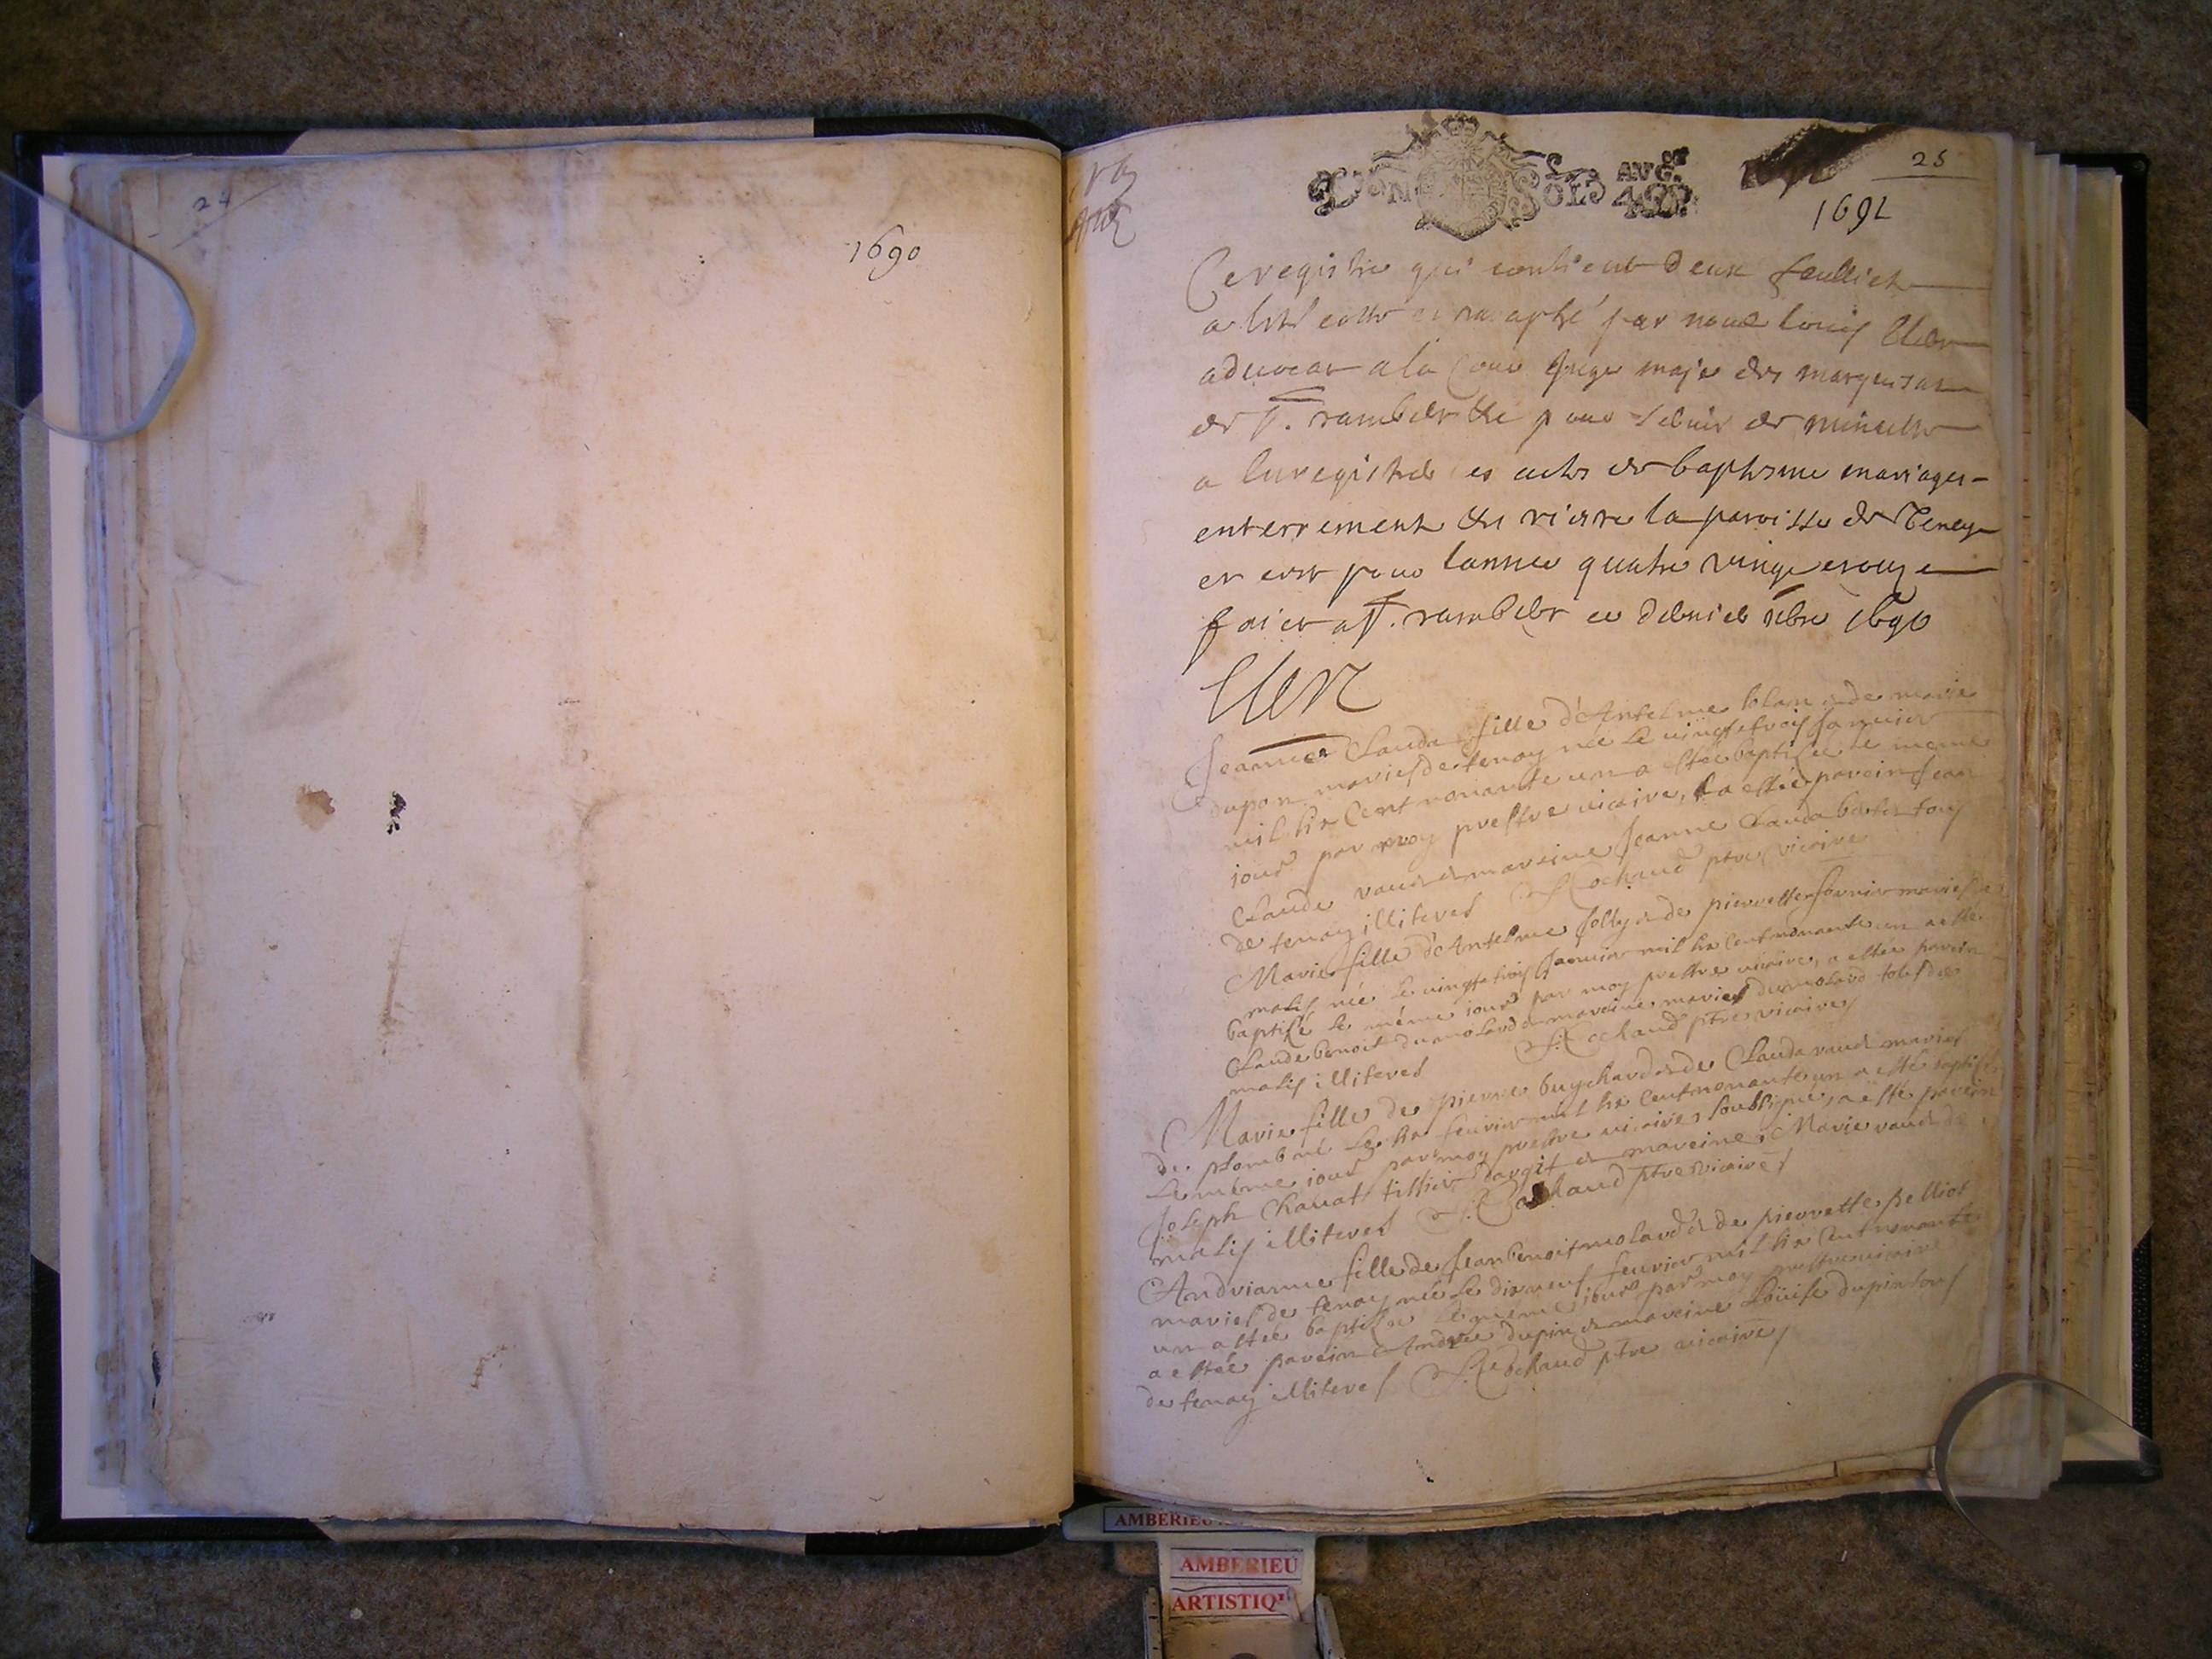 24
1690
25
1691
UN SOL AVG.
Ce registre qui contient deux feullietz
a esté cotté et paraphé par nous Louis Clerc
aduocat a la Cour Juge maje du marquisat
de St. rambert pour seruir de minutte
a enregistrer les actes de baptesme mariages
enterrement la paroisse de Tenay
et ce pour lannée quatre vingt et onze
faict a St. rambert ce dernier xbre 1690
Clerc
Jeanne Clauda fille d'Antelme blanc & de marie
dupon mariés de tenay née le vingt et trois Januier
mil six Cent nonante un a estée baptisée le meme
iour par moy prestre vicaire, a estée parein Jean
Claude vaud & mareine Jeanne Clauda tous
de tenay illiteres Rochaud ptre vicaire
Marie fille d'Antelme Jolly & de pierrette fornier mariés de
malis née le vingt et trois Januier mil six Cent nonante un a esté
baptisé le même iour par moy prestre vicaire, a estée parein
Claude benoit dumolard & mareine marie dumolard tous de
malis illiteres Rochaud ptre vicaire
Marie fille de pierre buychard & de Clauda vaud mariés
de plomb né le six feurier mil six Cent nonante un a esté baptisée
le même iour par moy prestre vicaire soubsigné, a esté parein
Joseph Chauat tissier d'argit et mareine Marie vaud de
malis illiteres Rochaud ptre vicaire
Andrianne fille de Jean benoit molard & de pierrette pelliot
mariés de tenay née le dix neuf feurier mil six Cent nonante
un a estée baptisée le meme iour par moy prestre vicaire
a estée parein André dupin & mareine Loüise dupin tous
de tenay illiteres Rochaud ptre vicaire
AMBERIEU
AMBERIEU
ARTISTIQU